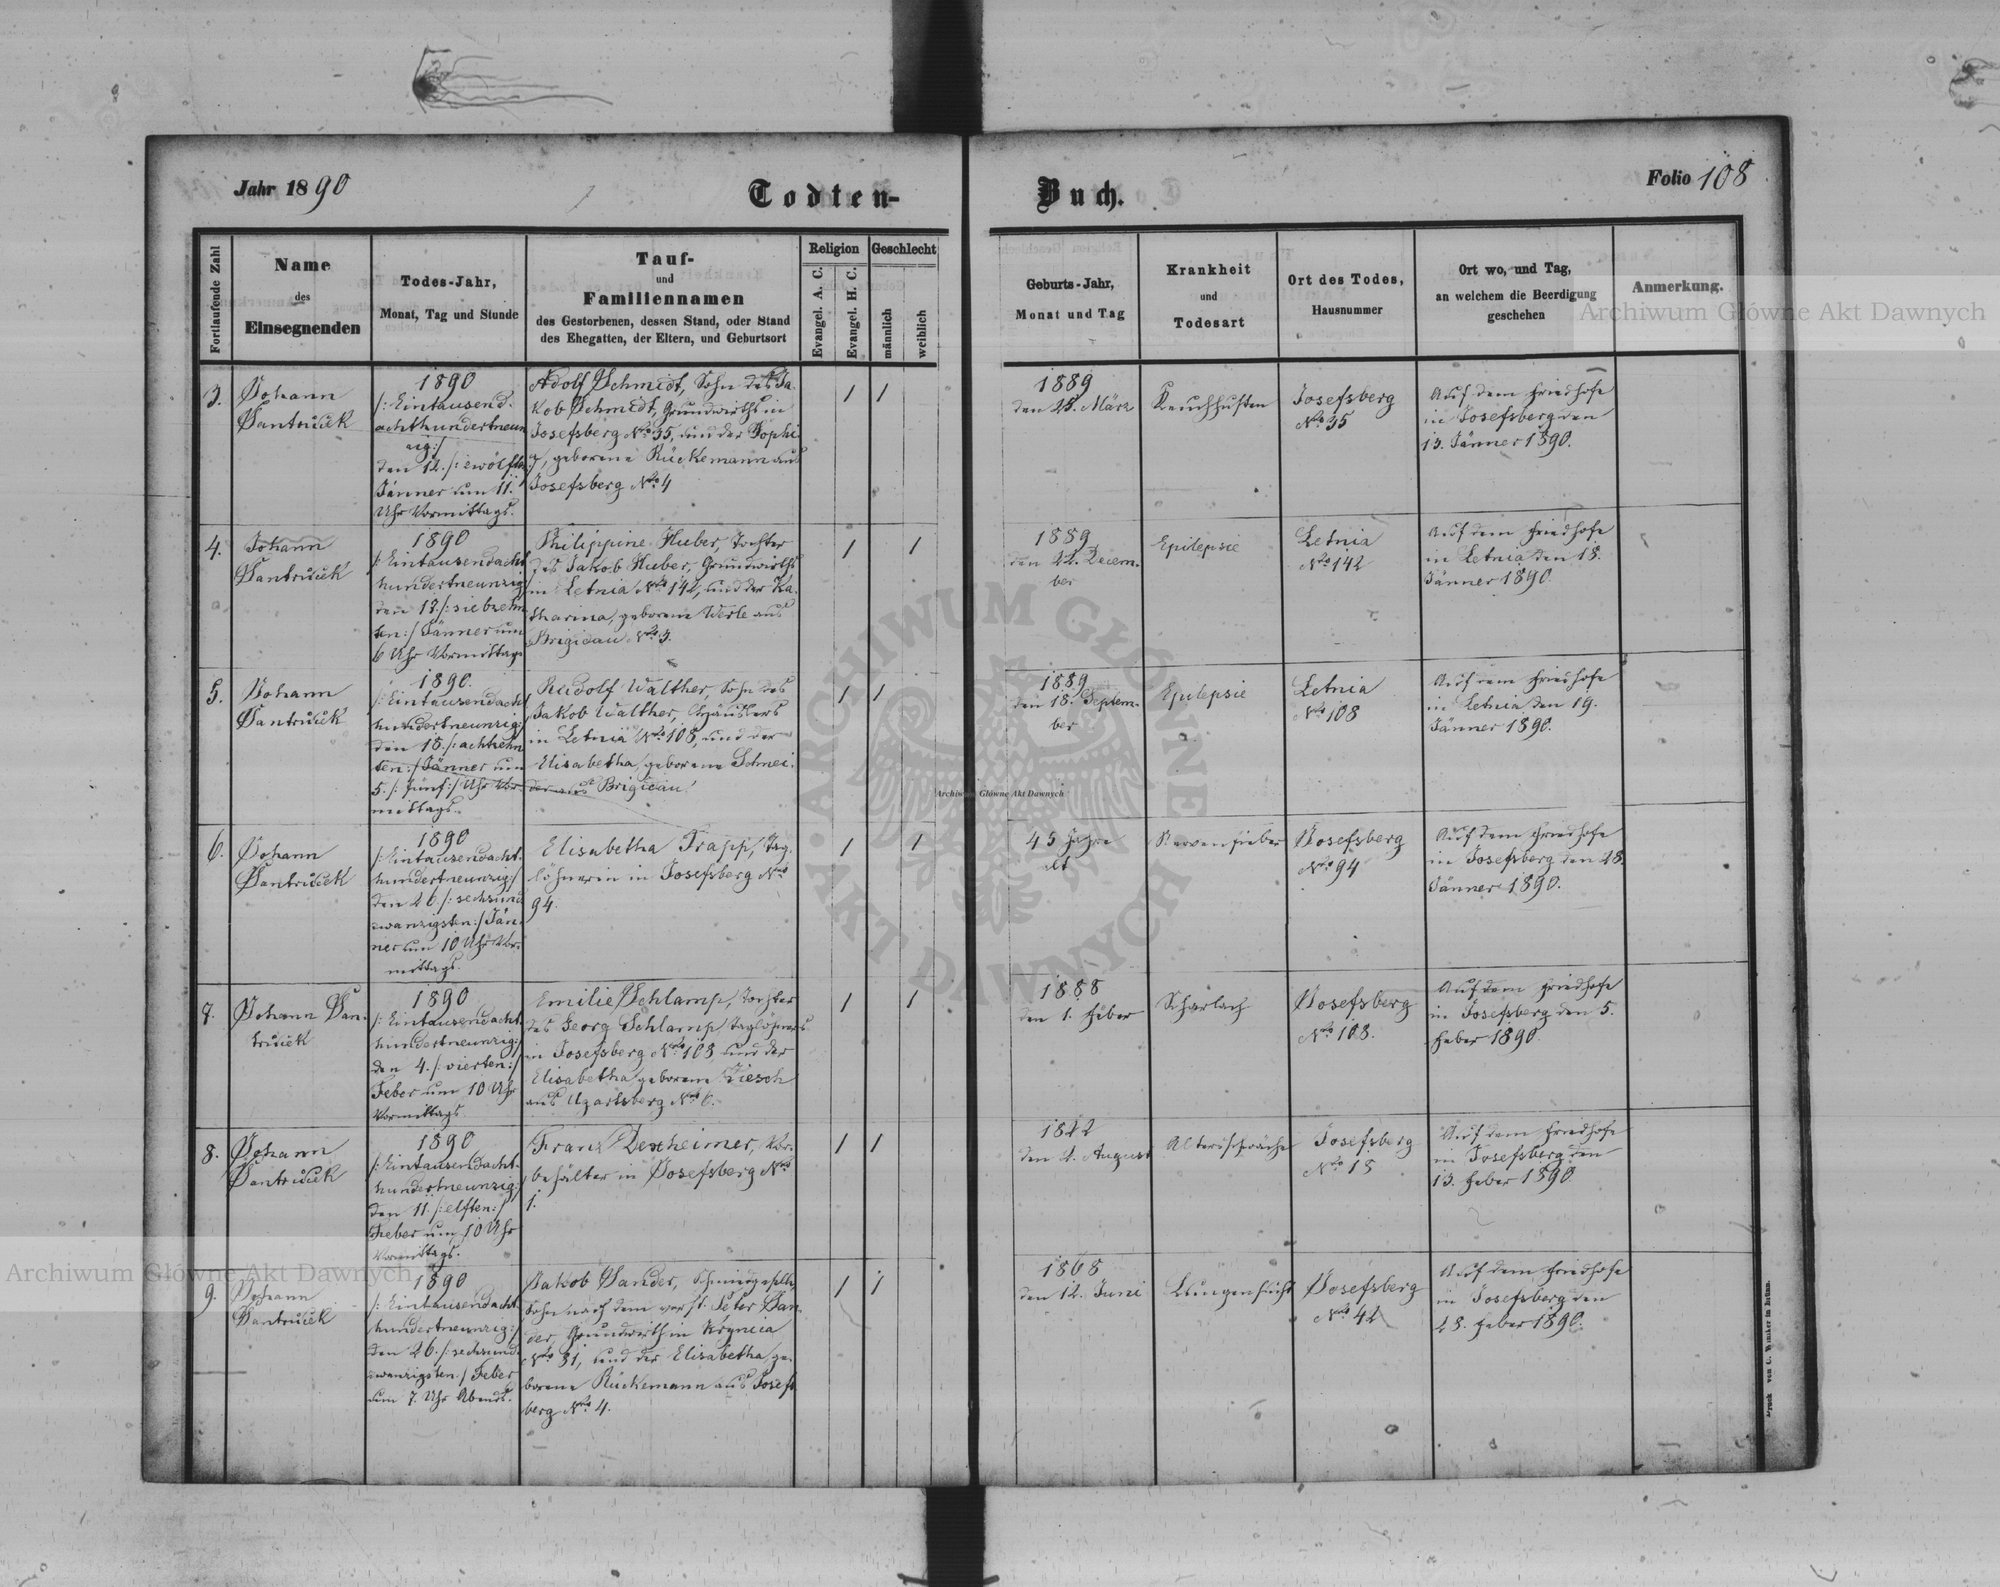 Jahr 1890
Todten-
Buch.
Folio 108
Fortlaufende Zahl
Name
des
Einsegnenden
Todes-Jahr,
Monat, Tag und Stunde
Tauf-
und
Familiennamen
des Gestorbenen, dessen Stand, oder Stand
des Ehegatten, der Eltern, und Geburtsort
Religion
Evangel. A. C.
Evangel. H. C.
Geschlecht
männlich
weiblich
Geburts-Jahr,
Monat und Tag
Krankheit
und
Todesart
Ort des Todes,
Hausnummer
Ort wo, und Tag,
an welchem die Beerdigung
geschehen
Anmerkung.
3.
Johann
Santruček
1890
/: Eintausend-
achthundertneun
zig :/
den 12. /: zwölften
Jänner um 11.
Uhr Vormittags.
Adolf Schmidt, Sohn des Ja-
kob Schmidt, Grundwirths in
Josefsberg No 35, und der Sophi
geborene Rückemann aus
Josefsberg No 4
1
1
1889
den 25. März
Keuchhusten
Josefsberg
No 35
Auf dem Friedhofe
in Josefsberg den
13. Jänner 1890.
4.
Johann
Santruček
1890
/: Eintausendacht
hundertneunzig
den 17. /: siebzehn
ten :/ Jänner um
6 Uhr Vormittags
Philippine Huber, Tochter
des Jakob Huber, Grundwirths
in Letnia No 142, und der Ka-
tharina, geborene Werle aus
Brigidau No 3.
1
1
1889
den 22. Decem-
ber
Epilepsie
Letnia
No 142
Auf dem Friedhofe
in Letnia den 18.
Jänner 1890.
5.
Johann
Santruček
1890.
/: Eintausendacht
hundertneunzig :/
den 18. /: achtzehn
ten :/ Jänner um
5. /: fünf :/ Uhr Vor-
mittags.
Rudolf Walther, Sohn des
Jakob Walther, Häuslers
in Letnia No 108, und der
Elisabetha, geborene Schnei-
der aus Brigidau.
1
1
1889
den 18. Septem-
ber
Epilepsie
Letnia
No 108
Auf dem Friedhofe
in Letnia den 19.
Jänner 1890.
6.
Johann
Santruček
1890
/: Eintausendacht-
hundertneunzig :/
den 26. /: sechsund
zwanzigsten :/ Jän-
ner um 10 Uhr Vor-
mittags.
Elisabetha Trapp, Tag-
löhnerin in Josefsberg No
94.
1
1
45 Jahre
alt
Nervenfieber
Josefsberg
No 94
Auf dem Friedhofe
in Josefsberg den 28.
Jänner 1890.
7.
Johann San-
truček
1890
/: Eintausendacht-
hundertneunzig :/
den 4. /: vierten :/
Feber um 10 Uhr
Vormittags
Emilie Schlamp, Tochter
des Georg Schlamp Taglöhners
in Josefsberg No 108 und der
Elisabetha geborene Diesch
aus Ugartsberg No 6.
1
1
1888
den 1. Feber
Scharlach
Josefsberg
No 108.
Auf dem Friedhofe
in Josefsberg den 5.
Feber 1890.
8.
Johann
Santruček
1890
/: Eintausendacht-
hundertneunzig :/
den 11. /: elften :/
Feber um 10 Uhr
Vormittags.
Franz Dexheimer, Vor-
behälter in Josefsberg No
1.
1
1
1822
den 2. August
Altersschwäche
Josefsberg
No 18
Auf dem Friedhofe
in Josefsberg den
13. Feber 1890.
9.
Johann
Santruček
1890
/: Eintausendacht-
hundertneunzig :/
den 26. /: sechsund
zwanzigsten :/ Feber
um 7. Uhr Abends.
Jakob Sander, Schmidgeselle,
Sohn nach dem verst. Peter San-
der, Grundwirth in Krynica
No 31, und der Elisabetha, ge-
borene Rückemann aus Josefs
berg No 4.
1
1
1868
den 12. Juni
Lungensucht
Josefsberg
No 42
Auf dem Friedhofe
in Josefsberg den
28. Feber 1890.
Druck von C. Winiker in Brünn.
Archiwum Główne Akt Dawnych
Archiwum Główne Akt Dawnych
Archiwum Główne Akt Dawnych
ARCHIWUM GŁÓWNE
AKT DAWNYCH